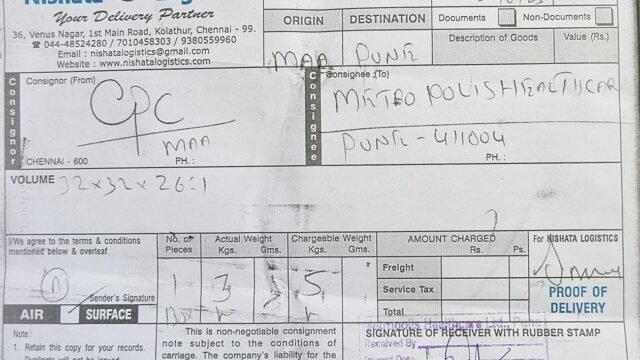 Your Delivery Partner
36, Venus Nagar, 1st Main Road, Kolathur, Chennai - 99.
☎ 044-48524280 / 7010458303 / 9380559960
Email : nishatalogistics@gmail.com
Website : www.nishatalogistics.com
ORIGIN DESTINATION
MAA PUNE
Documents Non-Documents
Description of Goods Value (Rs.)
Consignor
Consignor (From)
CPC
MAA
CHENNAI - 600 PH. :
Consignee
Consignee (To)
METROPOLIS HEALTHCAR
PUNE - 411004
PH. :
VOLUME 32x32x26:1
I/We agree to the terms & conditions
mentioned below & overleaf
Sender's Signature
AIR SURFACE
No. of
Pieces
Actual Weight
Kgs. Gms.
Chargeable Weight
Kgs. Gms.
1 3 5
AMOUNT CHARGED
Rs. Ps.
Freight
Service Tax
Total
For NISHATA LOGISTICS
PROOF OF
DELIVERY
Note :
1. Retain this copy for your records.
This is non-negotiable consignment
note subject to the conditions of
carriage. The company's liability for the
SIGNATURE OF RECEIVER WITH RUBBER STAMP
Received By